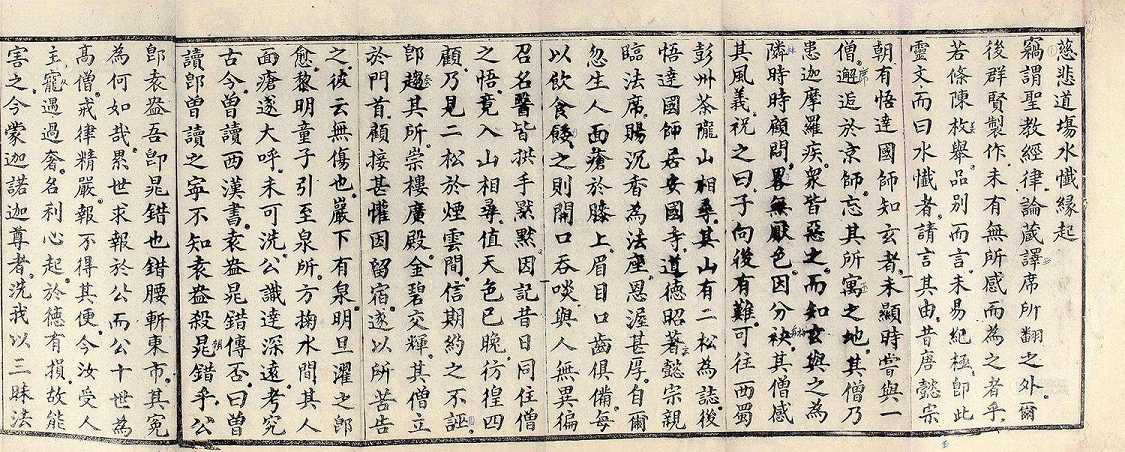 慈悲道場水懺緣起
竊謂聖教經律論藏譯席所翻之外。爾
後群賢製作。未有無所感而為之者乎。
若條陳枚舉。品別而言。未易紀極。即此
靈文。而曰水懺者。請言其由。昔唐懿宗
朝有悟達國師知玄者。未顯時嘗與一
僧。邂逅於京師。忘其所寓之地。其僧乃
患迦摩羅疾。衆皆惡之。而知玄與之為
隣時時顧問。畧無厭色。因分袂。其僧感
其風義。祝之曰。子向後有難。可往西蜀
彭州茶隴山相尋。其山有二松為誌。後
悟達國師居安國寺。道德昭著。懿宗親
臨法席。賜沉香為法座。恩渥甚厚。自爾
忽生人面瘡於膝上。眉目口齒俱備。每
以飲食餧之則開口吞啖。與人無異。徧
召名醫。皆拱手默默。因記昔日同住僧
之悟。竟入山相尋。值天色已晚。彷徨四
顧。乃見二松於煙雲間。信期約之不誣。
即趨其所。崇樓廣殿。金碧交輝。其僧立
於門首。顧接甚懽。因留宿。遂以所苦告
之。彼云無傷也。巖下有泉。明旦濯之即
愈。黎明童子引至泉所。方掬水間。其人
面瘡遂大呼。未可洗。公識達深遠。考究
古今。曾讀西漢書。袁盎晁錯傳否。曰曽
讀。即曽讀之。寧不知袁盎殺晁錯乎。公
即袁盎。吾即晁錯也。錯腰斬東市。其寃
為何如哉。累世求報於公。而公十世為
高僧。戒律精嚴。報不得其便。今汝受人
主寵遇過奢。名利心起。於德有損。故能
害之。今蒙迦諾迦尊者。洗我以三昧法